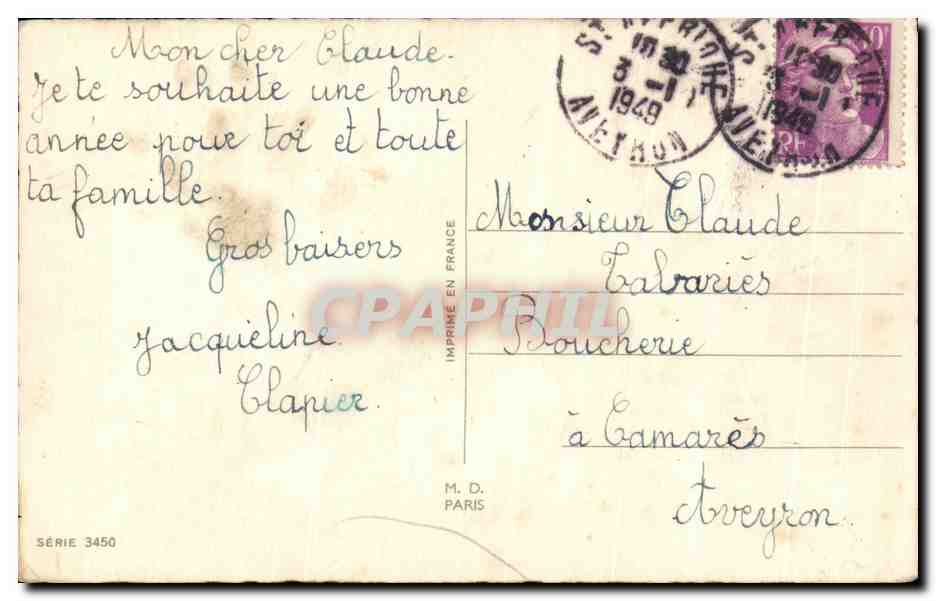 Mon cher Claude.
Je te souhaite une bonne
année pour toi et toute
ta famille.
Gros baisers
Jacqueline
Clapier.
Monsieur Claude
Calvariès
Boucherie
à Camarès
Aveyron.
IMPRIMÉ EN FRANCE
M. D.
PARIS
SÉRIE 3450
ST AFFRIQUE
10 30
3 -1
1949
AVEYRON
AFFRIQUE
10 30
3 -1
1949
AVEYRON
RF
CPAPHIL